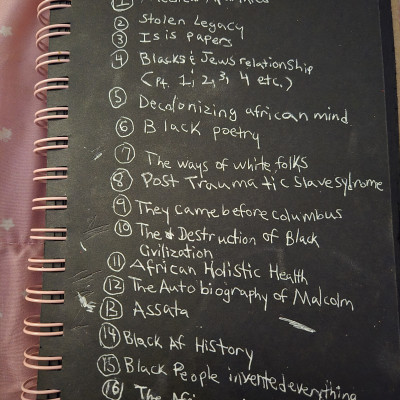 ①
② Stolen Legacy
③ Isis papers
④ Blacks & Jews relationship
(Pt. 1, 2, 3, 4 etc.)
⑤ Decolonizing african mind
⑥ Black poetry
⑦ The ways of white folks
⑧ Post Traumatic slave sydrome
⑨ They came before columbus
⑩ The Destruction of Black
Civilization
⑪ African Holistic Health
⑫ The Autobiography of Malcolm
⑬ Assata
⑭ Black Af History
⑮ Black People invented everything
⑯ The